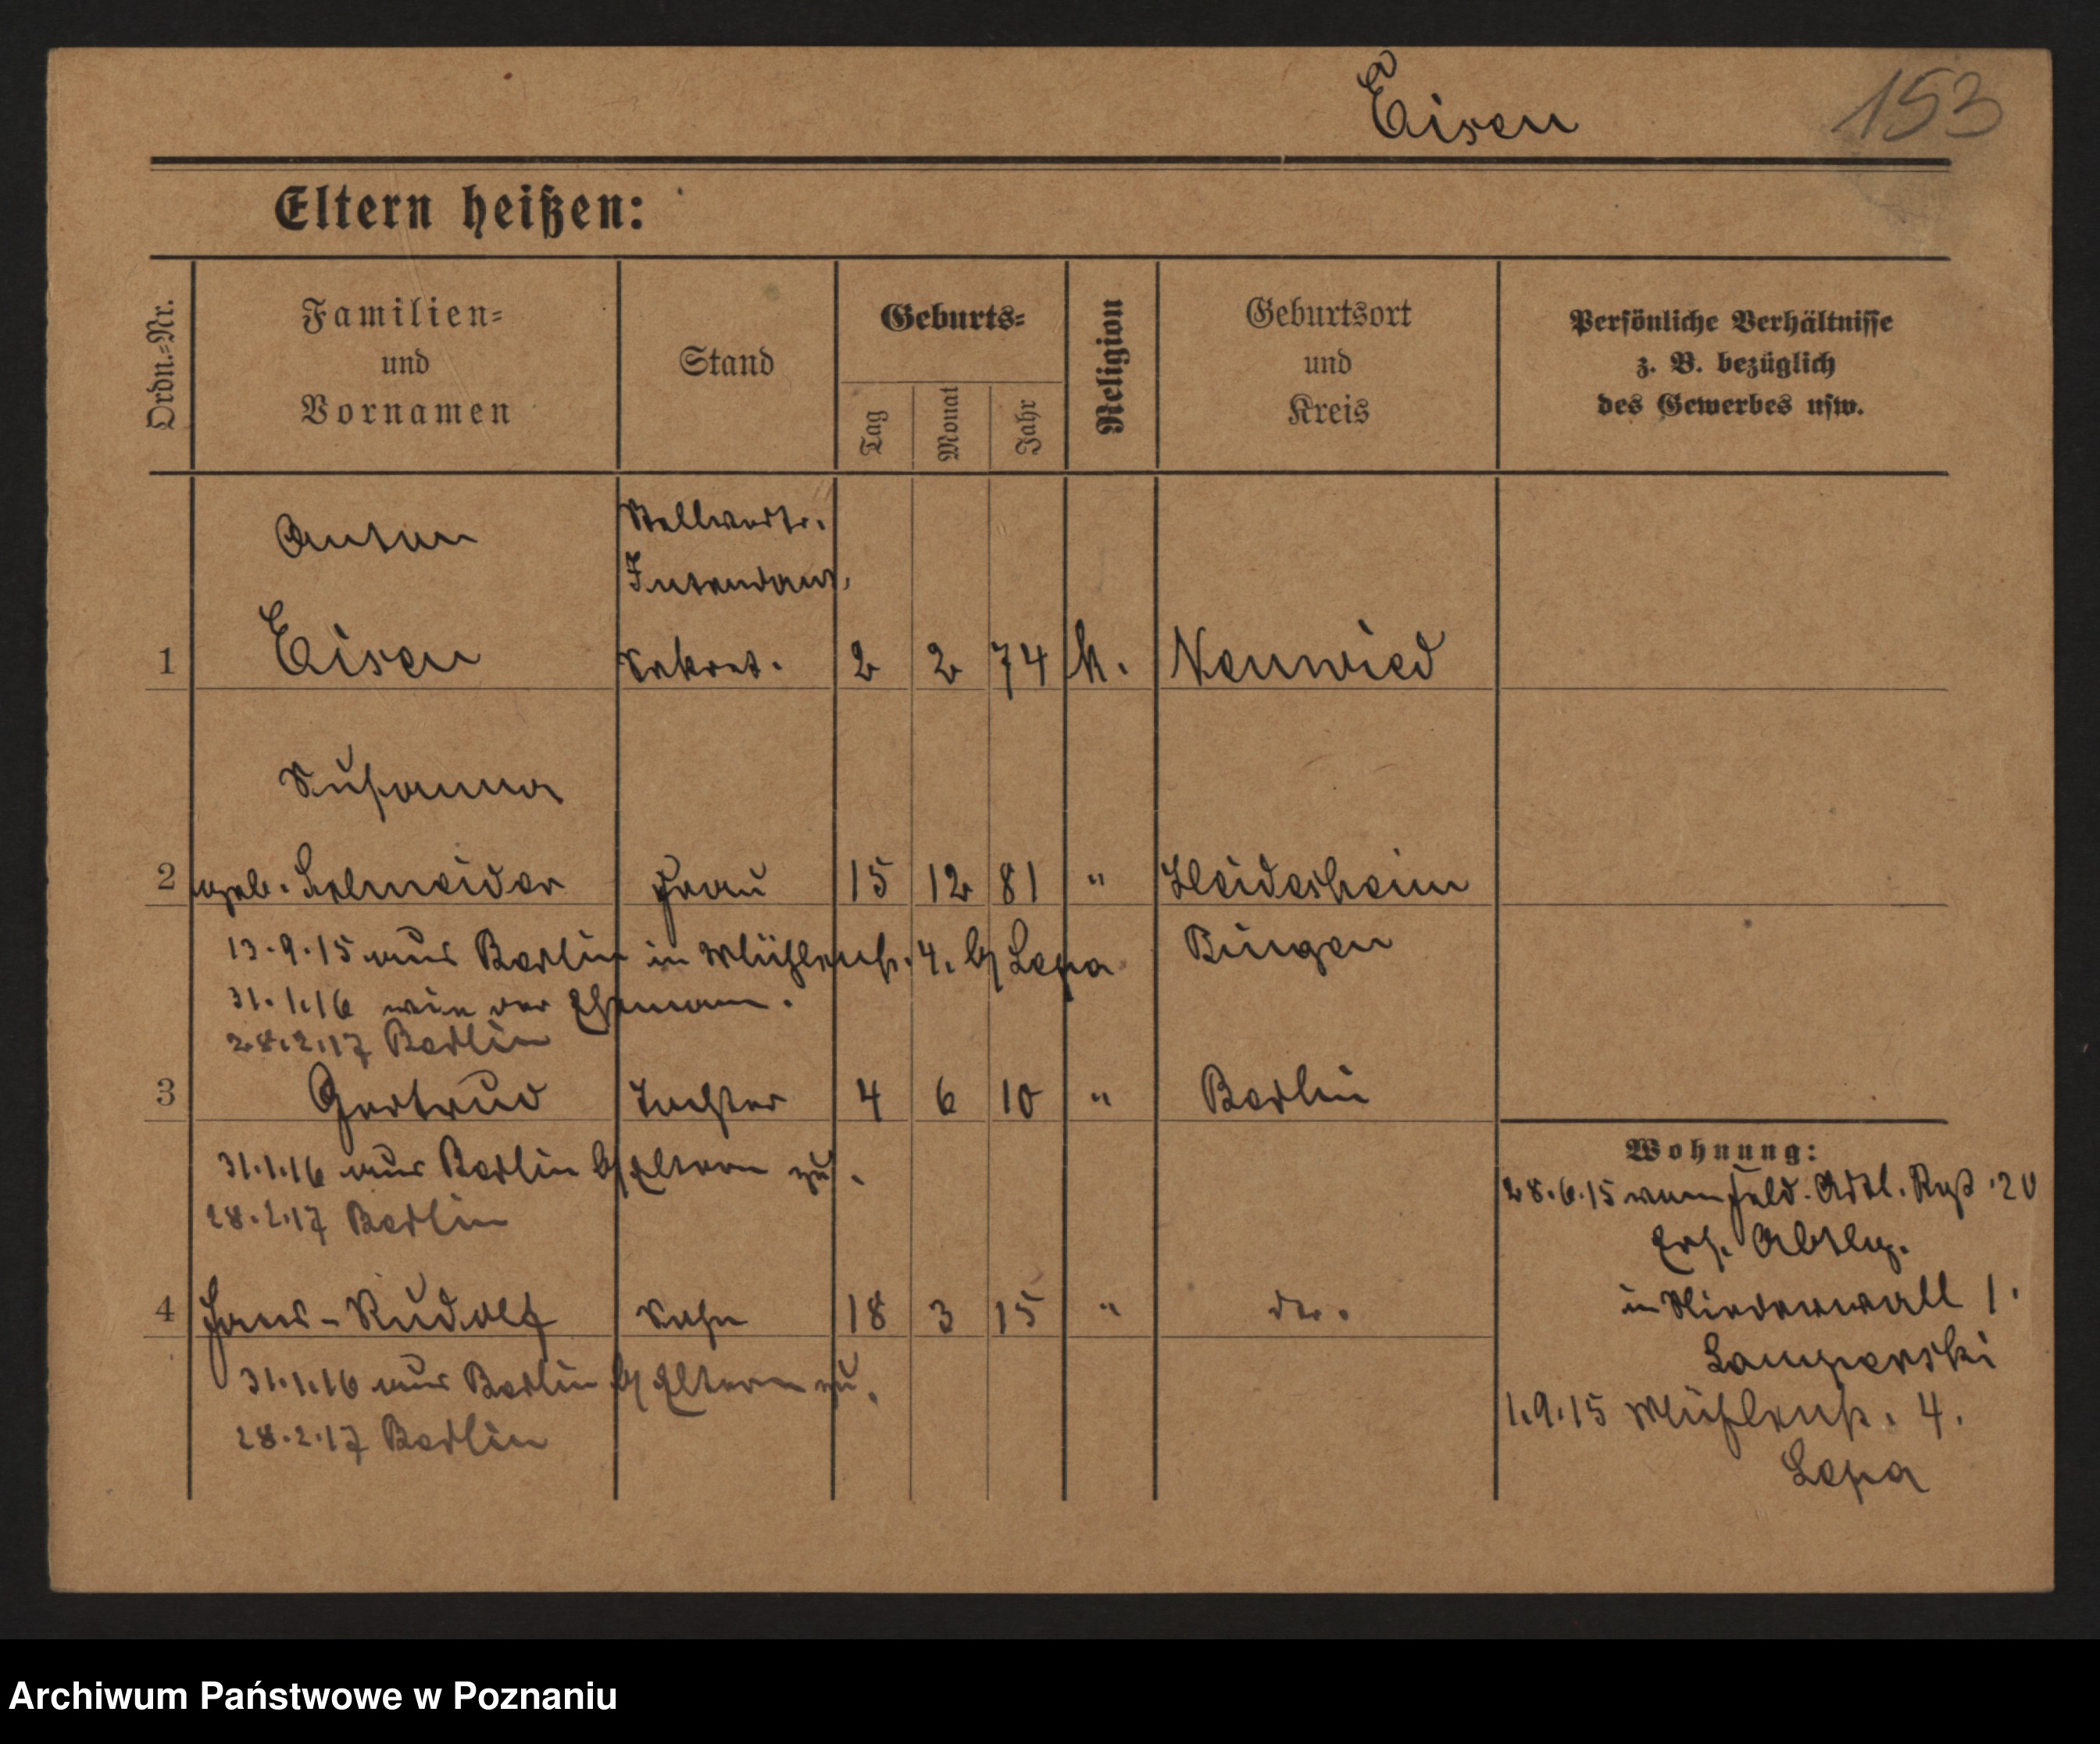 Eisen
153
Eltern heißen:
Ordn.=Nr.
Familien=
und
Vornamen
Stand
Geburts=
Tag
Monat
Jahr
Religion
Geburtsort
und
Kreis
Persönliche Verhältnisse
z. B. bezüglich
des Gewerbes usw.
Anton
Stellvertr.
Intendant.
1 Eisen Sekret. 2 2 74 k. Neuwied
Susanna
2 geb. Schneider Frau 15 12 81 " Heidesheim
13.9.15 aus Berlin in Mühlenstr. 4. b/ Lepa Bingen
31.1.16 wie der Ehemann.
28.2.17 Berlin
3 Gertrud Tochter 4 6 10 " Berlin
31.1.16 aus Berlin b/ Eltern zu.
28.2.17 Berlin
4 Hans-Rudolf Sohn 18 3 15 " do.
31.1.16 aus Berlin b/ Eltern zu.
28.2.17 Berlin
Wohnung:
28.6.15 vom Feld. Artl. Rgt. 20
Ers. Abtlg.
in Niederwall 1.
1.9.15 Mühlenstr. 4.
Lepa
Archiwum Państwowe w Poznaniu